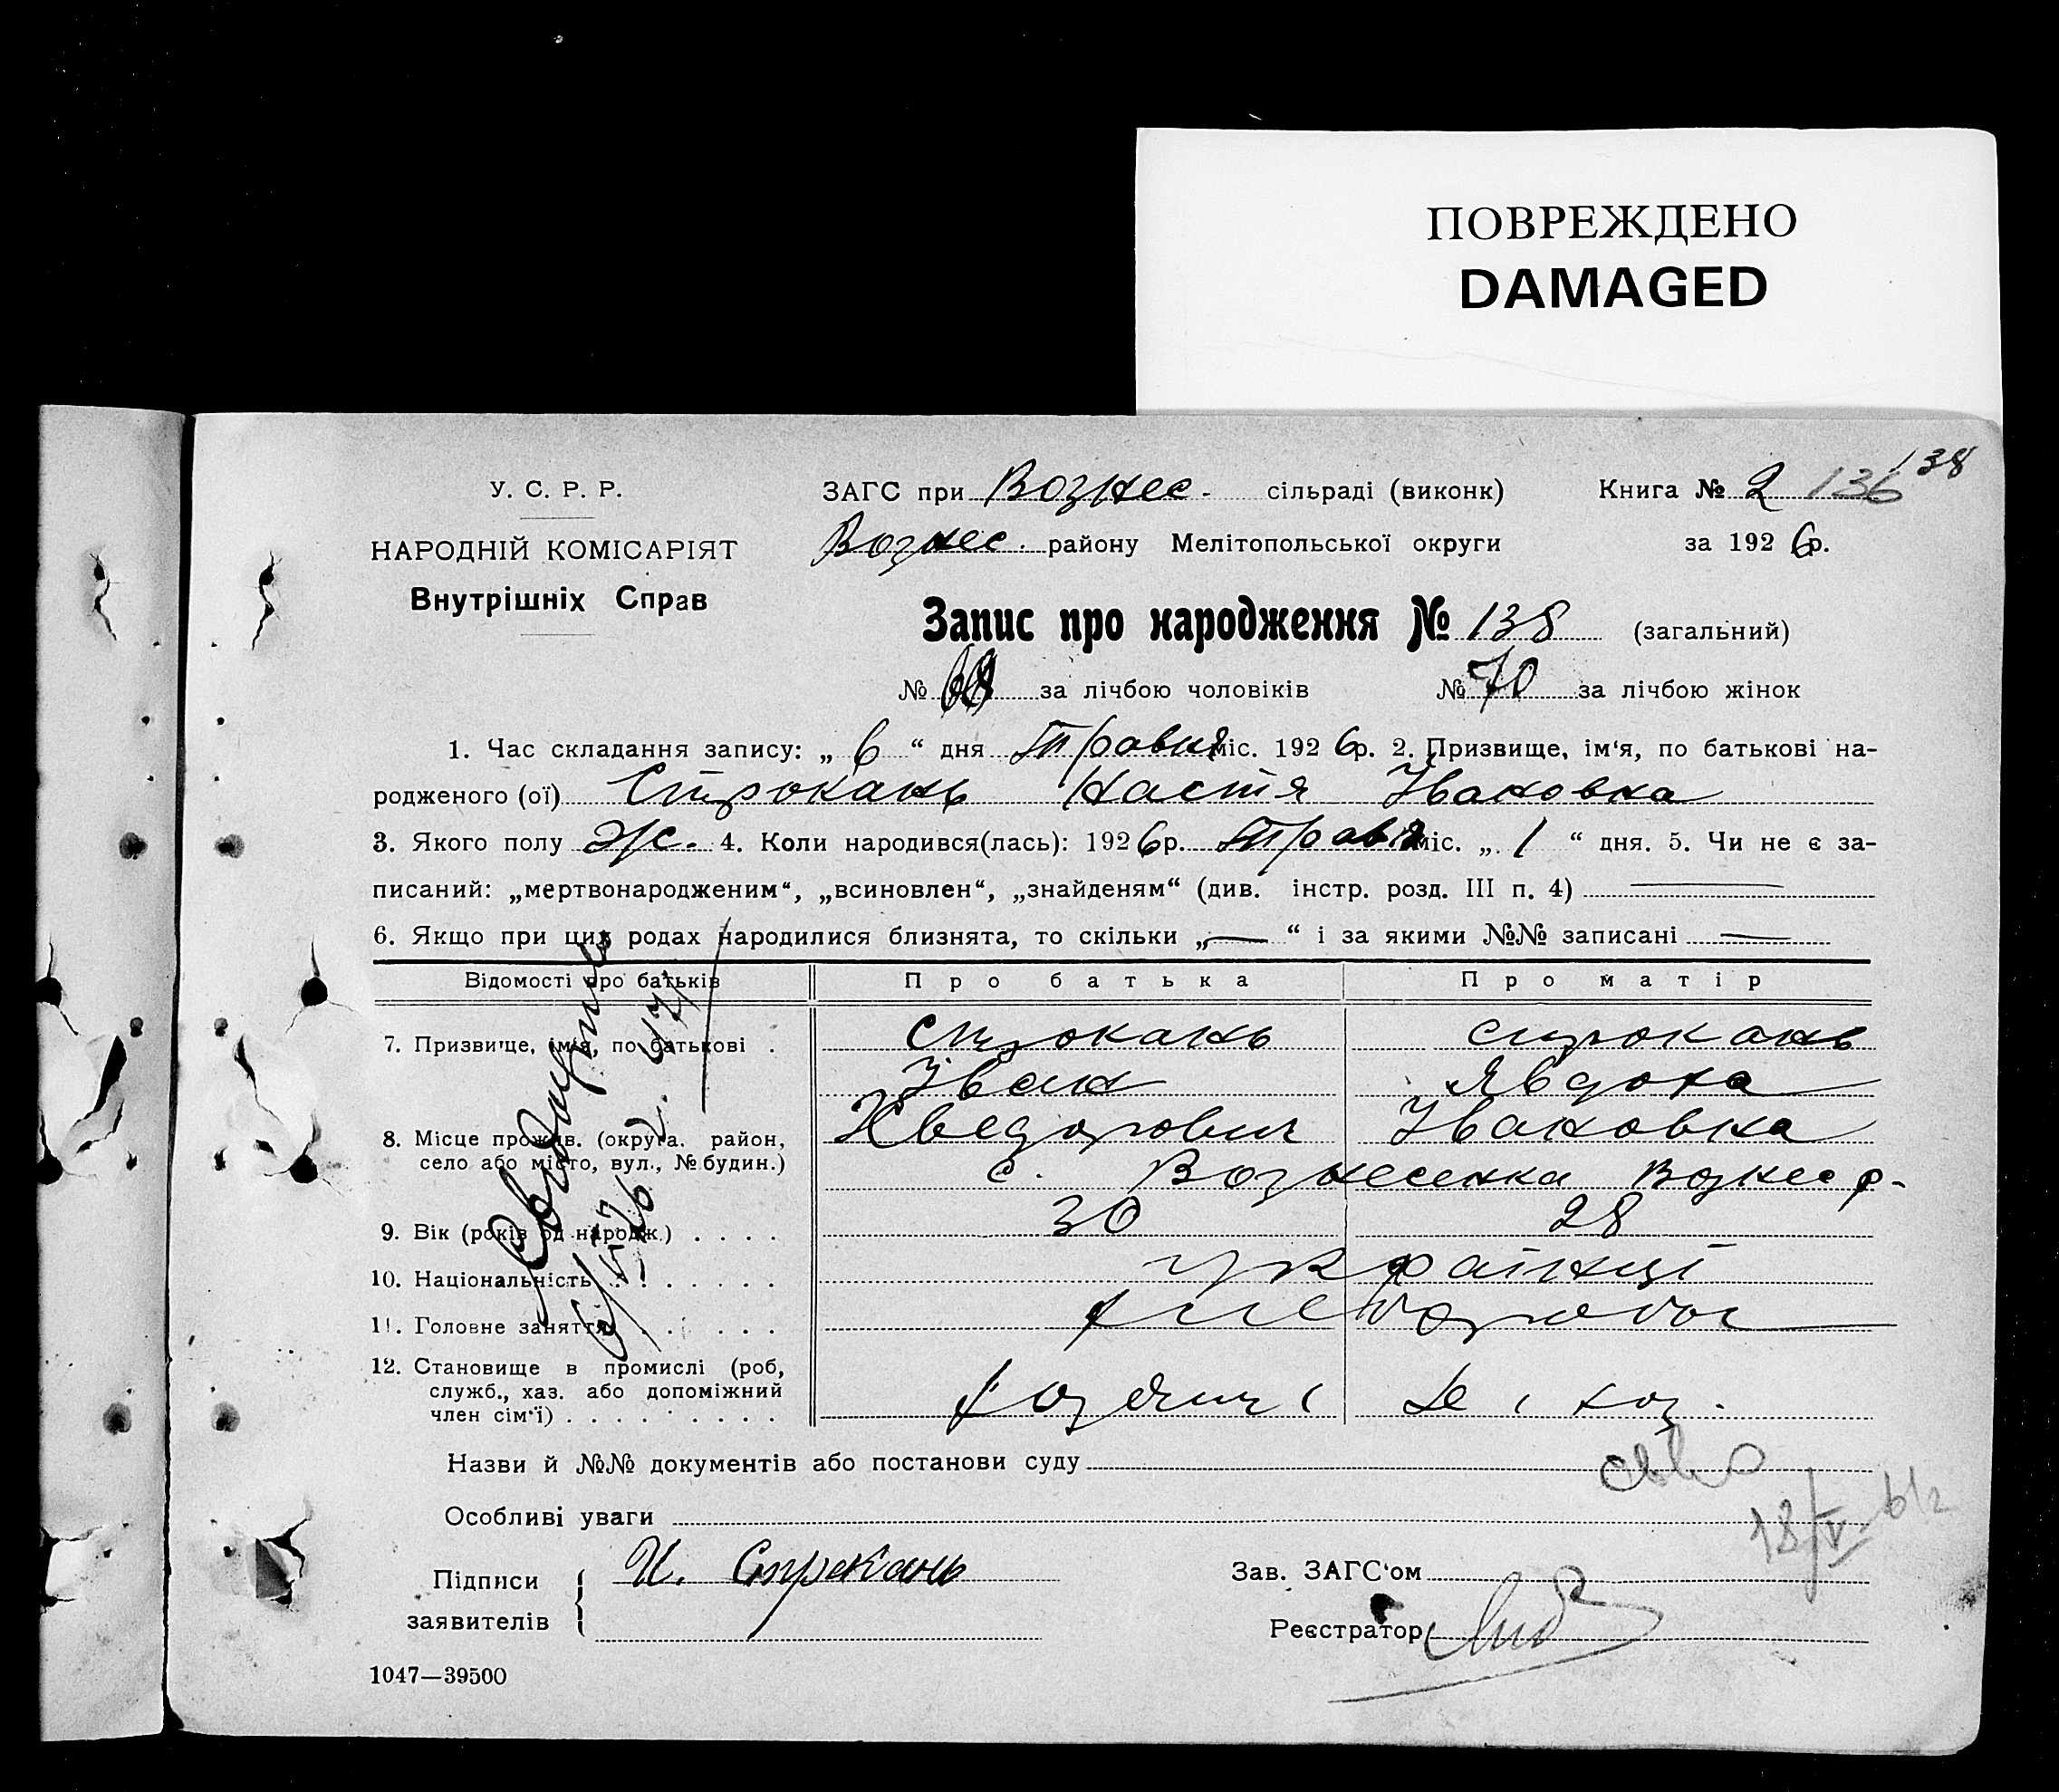 ПОВРЕЖДЕНО
DAMAGED
138
У. С. Р. Р.
ЗАГС при Вознес. сільраді (виконк)
Книга № 2 136
НАРОДНІЙ КОМІСАРІЯТ
Вознес. району Мелітопольської округи
за 1926р.
Внутрішніх Справ
Запис про народження № 138 (загальний)
№ за лічбою чоловіків № 70 за лічбою жінок
1. Час складання запису: „ 6 “ дня Травня міс. 1926р. 2. Призвище, ім‘я, по батькові на-
родженого (ої) Строкань Настя Івановна
3. Якого полу ж. 4. Коли народився(лась): 1926р. Травня міс. „ 1 “ дня. 5. Чи не є за-
писаний: „мертвонародженим“, „всиновлен“, „знайденям“ (див. інстр. розд. III п. 4) —
6. Якщо при цих родах народилися близнята, то скільки „ — “ і за якими №№ записані —
Відомості про батьків Про батька Про матір
7. Призвище, ім‘я, по батькові . Строкань Строкань
Іван Явдоха
8. Місце прожив. (округа, район, Хведорович Івановна
село або місто, вул., № будин.) с. Вознесенка Вознес р-
9. Вік (років од народж.) . . . . 30 28
10. Національність . . . . . . . українці
11. Головне заняття . . . . . . хлебороби
12. Становище в промислі (роб,
служб., хаз. або допоміжний
член сім‘ї) . . . . . . . . .
Назви й №№ документів або постанови суду
Особливі уваги
18/V-
Підписи
заявителів
И. Строкань
Зав. ЗАГС‘ом
Реєстратор
1047—39500